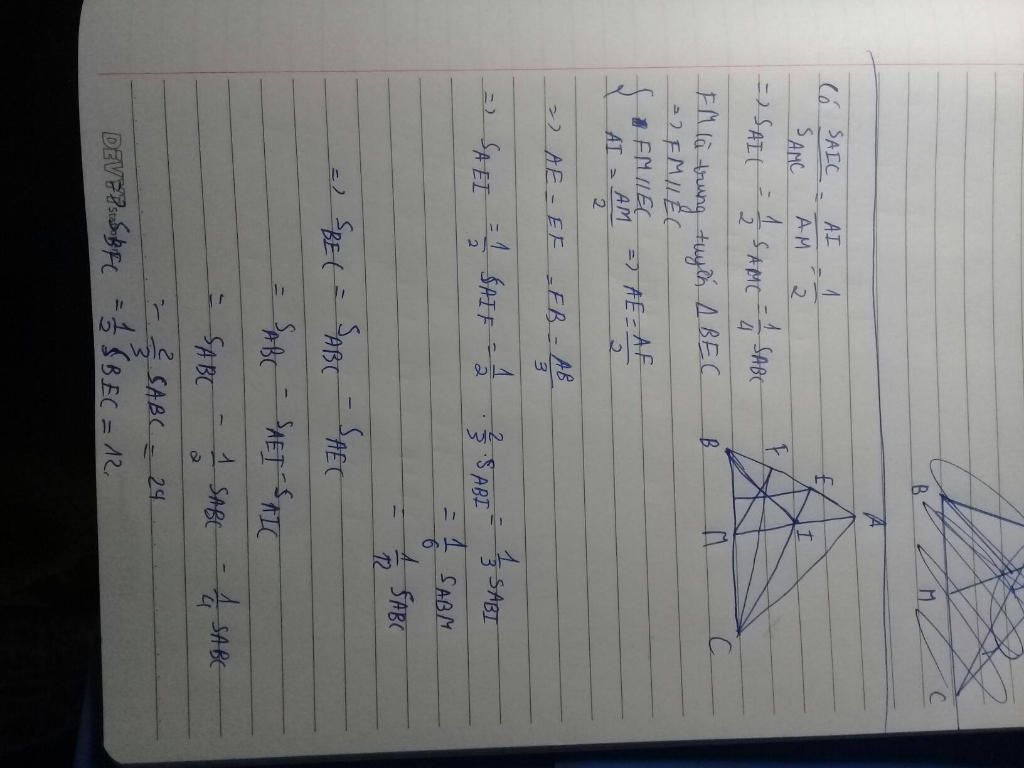 B M C
A
E
F I
B M C
Có SAIC/SAMC = AI/AM = 1/2
=> SAIC = 1/2 SAMC = 1/4 SABC
FM là trung tuyến Δ BEC
=> FM // EC
{ FM // EC
AI = AM/2 => AE = AF/2
=> AE = EF = FB = AB/3
=> SAEI = 1/2 SAIF = 1/2 . 2/3 . SABI = 1/3 SABI
= 1/6 SABM
= 1/12 SABC
=> SBEC = SABC - SAEC
= SABC - SAEI - SAIC
= SABC - 1/2 SABC - 1/4 SABC
= 2/3 SABC = 24
SBFC = 1/2 SBEC = 12.